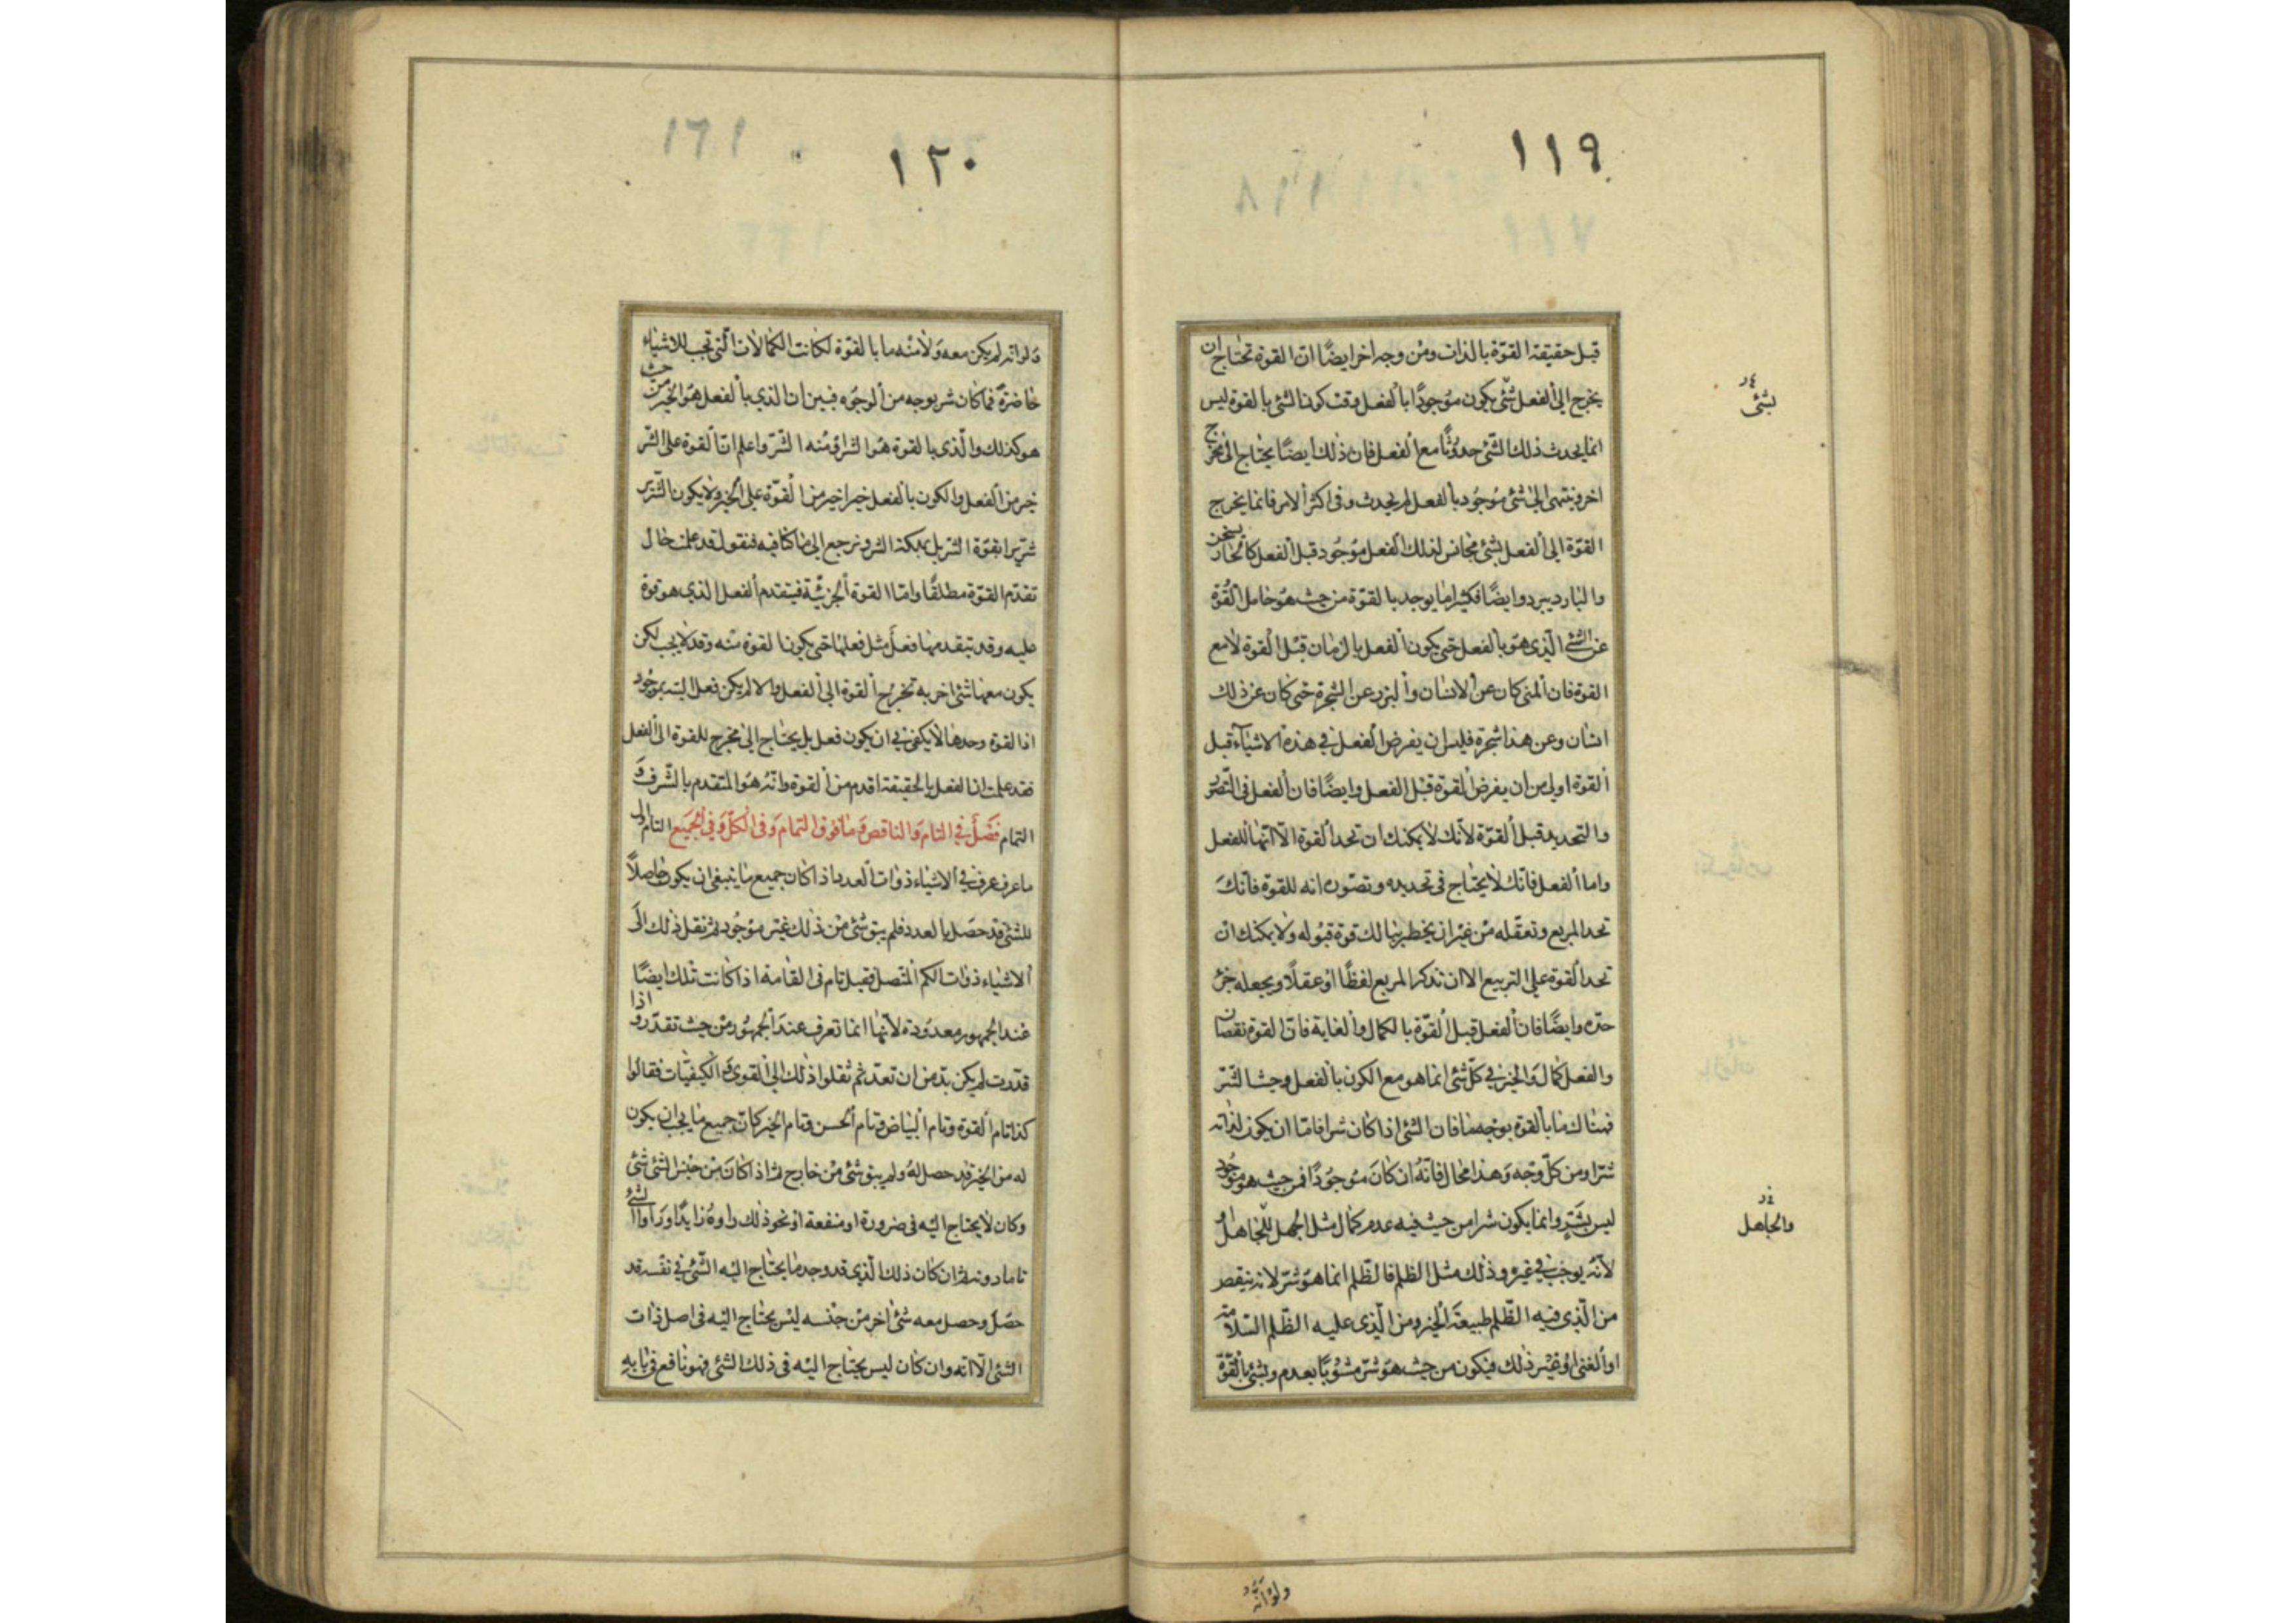 ١١٩
قبل حقيقة القوّة بالذات ومن وجه اخر ايضًا ان القوة تحتاج ان
يخرج الى الفعل شئ يكون موجودًا بالفعل وقت كون الشئ بالقوة ليس
انما يحدث ذلك الشئ حدوثًا مع الفعل فان ذلك ايضًا يحتاج الى مخرج
اخر وينتهى الى شئ موجود بالفعل لم يحدث وفى اكثر الامر فانما يخرج
القوّة الى الفعل بشئ مجانس لذلك الفعل موجود قبل الفعل كالحار يسخن
والبارد يبرد وايضًا فكثيرا ما يوجد بالقوّة من حيث هو حامل القوّة
عن الشئ الذى هو بالفعل حتى يكون الفعل بالزمان قبل القوة لا مع
القوة فان المنى كان عن الانسان والبزر عن الشجرة حتى كان عن ذلك
انسان وعن هذا شجرة فليس ان يفرض الفعل في هذه الاشياء قبل
القوة اولى من ان يفرض القوة قبل الفعل وايضًا فان الفعل فى التصور
والتحديد قبل القوّة لانك لا يمكنك ان تحد القوة الا انها للفعل
واما الفعل فانك لا يحتاج فى تحديده وتصوره انه للقوة فانك
تحد المربع وتعقله من غير ان يخطر ببالك قوة قبوله ولا يمكنك ان
تحد القوة على التربيع الا ان تذكر المربع لفظًا او عقلًا ويجعله جزء
حدّه وايضًا فان الفعل قبل القوّة بالكمال والغاية فان القوة نقصان
والفعل كمال والخير في كلّ شئ انما هو مع الكون بالفعل وحيث الشر
فهناك ما بالقوة بوجه ما فان الشئ اذا كان شرا فاما ان يكون لذاته
شرّا ومن كلّ وجه وهذا محال فانه ان كان موجودًا فمن حيث هو موجود
ليس بشرّ وانما يكون شرا من حيث فيه عدم كمال مثل الجهل للجاهل او
لانه يوجب في غيره وذلك مثل الظلم فالظلم انما هو شرّ لانه ينقص
من الّذي فيه الظّلم طبيعة الخير ومن الّذى عليه الظّلم السّلامة
او الغنى او غير ذلك فيكون من حيث هو شرّ مشوبًا بعدم وبشئ بالقوّة
لشئ
والجاهل
ولو انه
١٢٠
ولو انه لم يكن معه ولا منه ما بالقوة لكانت الكمالات الّتى تجب للاشياء
حاضرة فما كان شر بوجه من الوجوه فبين ان الذي بالفعل هو الخير من حيث
هو كذلك والّذى بالقوة هو الشر او منه الشّر واعلم ان القوة على الشر
خير من الفعل والكون بالفعل خيرا خير من القوّة على الخير ولا يكون الشّرير
شرّيرا بقوّة الشّر بل بملكة الشر ونرجع الى ما كنا فيه فنقول قد علمت حال
تقدّم القوّة مطلقًا واما القوة الجزئيّة فيتقدم الفعل الذي هو قوة
عليه وقد يتقدمها فعل مثل فعلها حتى يكون القوة منه وقد لا يجب لكن
يكون معها شئ اخر به تخرج القوة الى الفعل والا لم يكن فعل البتة بموجود
اذ القوة وحدها لا يكفى في ان يكون فعل بل يحتاج الى مخرج للقوة الى الفعل
فقد علمت ان الفعل بالحقيقة اقدم من القوة وانه هو المتقدم بالشّرف و
التمام فصل في التام والناقص وما فوق التمام وفى الكلّ وفي الجميع التام اول
ما عرف عرف في الاشياء ذوات العدد اذا كان جميع ما ينبغى ان يكون حاصلًا
للشئ قد حصل بالعدد فلم يبق شئ من ذلك غير موجود ثم نقل ذلك الى
الاشياء ذوات الكم المتصل فقيل تام فى القامة اذا كانت تلك ايضًا
عند الجمهور معدودة لانها انما تعرف عند الجمهور من حيث تقدّر واذا
قدّرت لم يكن بدّ من ان تعدّ ثم نقلوا ذلك الى القوى والكيفيّات فقالوا
كذا تام القوة وتام البياض وتام الحسن وتام الخير كان جميع ما يجب ان يكون
له من الخير قد حصل له ولم يبق شئ من خارج ثم اذا كان من جنس الشئ شئ
وكان لا يحتاج اليه فى ضرورة او منفعة او نحو ذلك راوه زايدًا وراوا الشئ
تاما دونه ثم ان كان ذلك الّذي قد وجد ما يحتاج اليه الشّئ في نفسه قد
حصل وحصل معه شئ اخر من جنسه ليس يحتاج اليه فى اصل ذات
الشئ الّا انه وان كان ليس يحتاج اليه فى ذلك الشئ فهو نافع في بابه